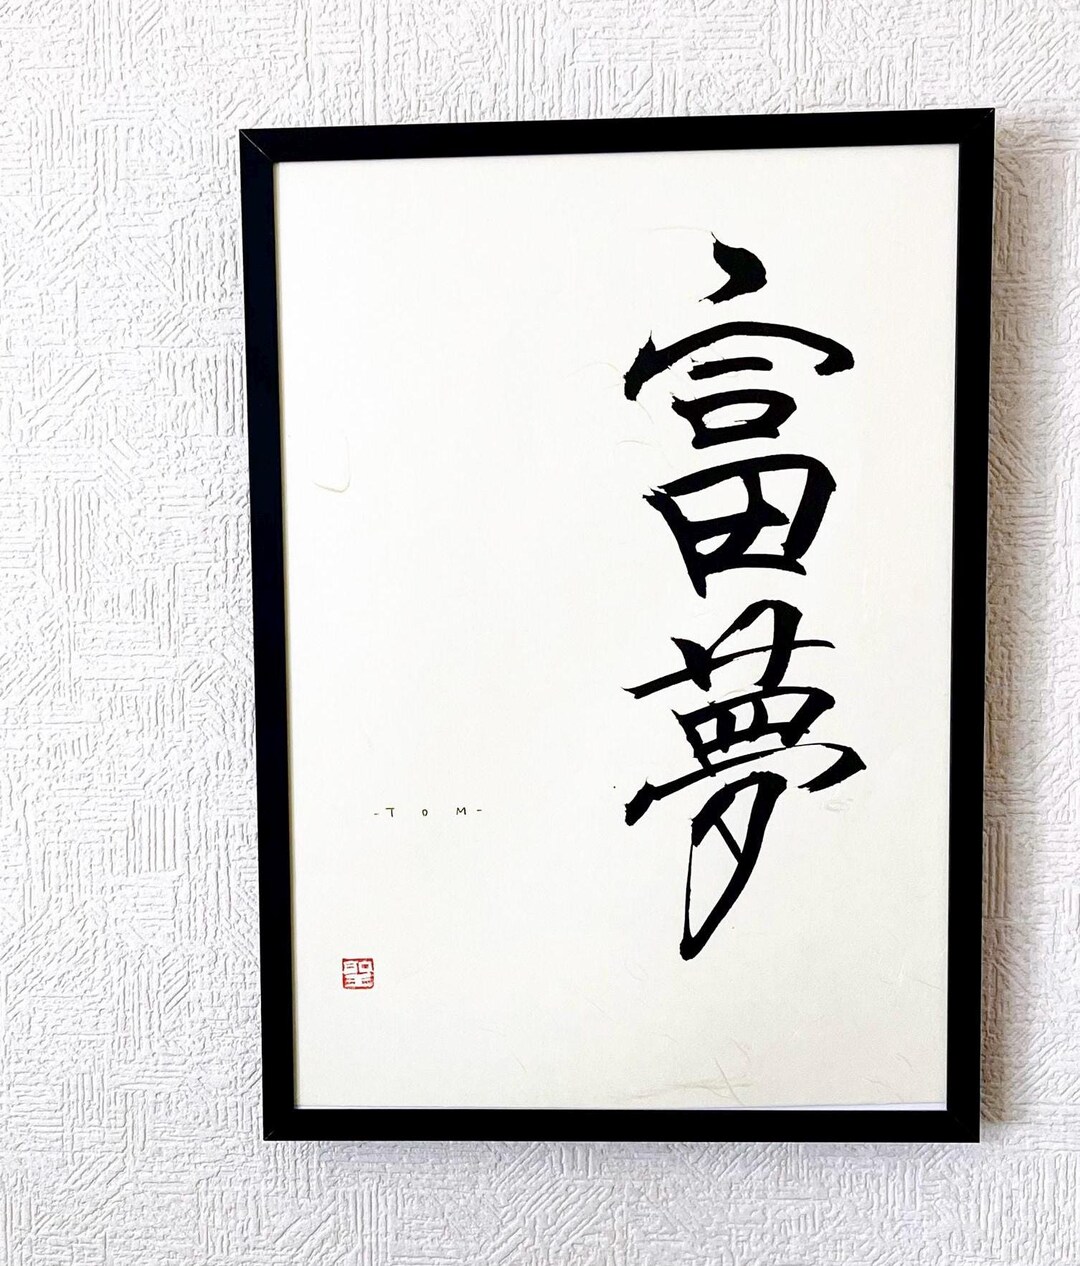 富夢
-TOM-
聖